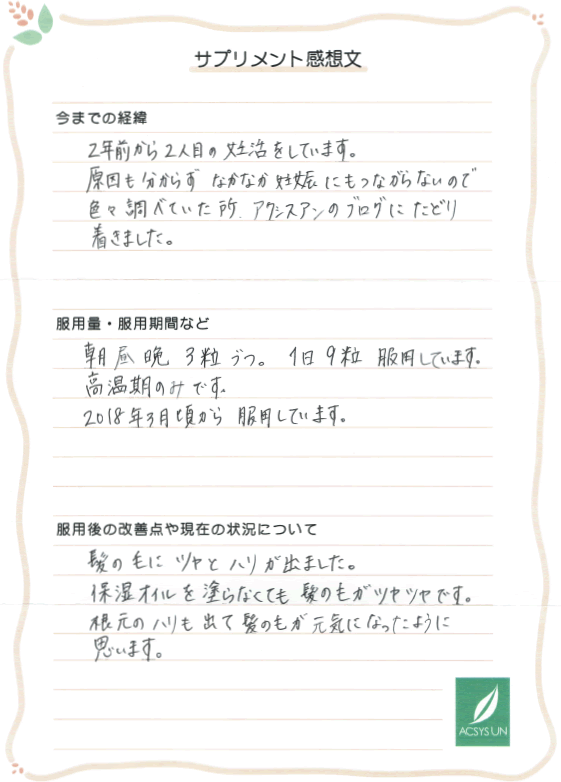 サプリメント感想文
今までの経緯
2年前から2人目の妊活をしています。
原因も分からず なかなか妊娠にもつながらないので
色々調べていた所、アクシスアンのブログにたどり
着きました。
服用量・服用期間など
朝昼晩 3粒づつ。 1日9粒 服用しています。
高温期のみです。
2018年3月頃から 服用しています。
服用後の改善点や現在の状況について
髪の毛に ツヤと ハリが出ました。
保湿オイルを塗らなくても 髪の毛がツヤツヤです。
根元のハリも出て髪の毛が元気になったように
思います。
ACSYSUN